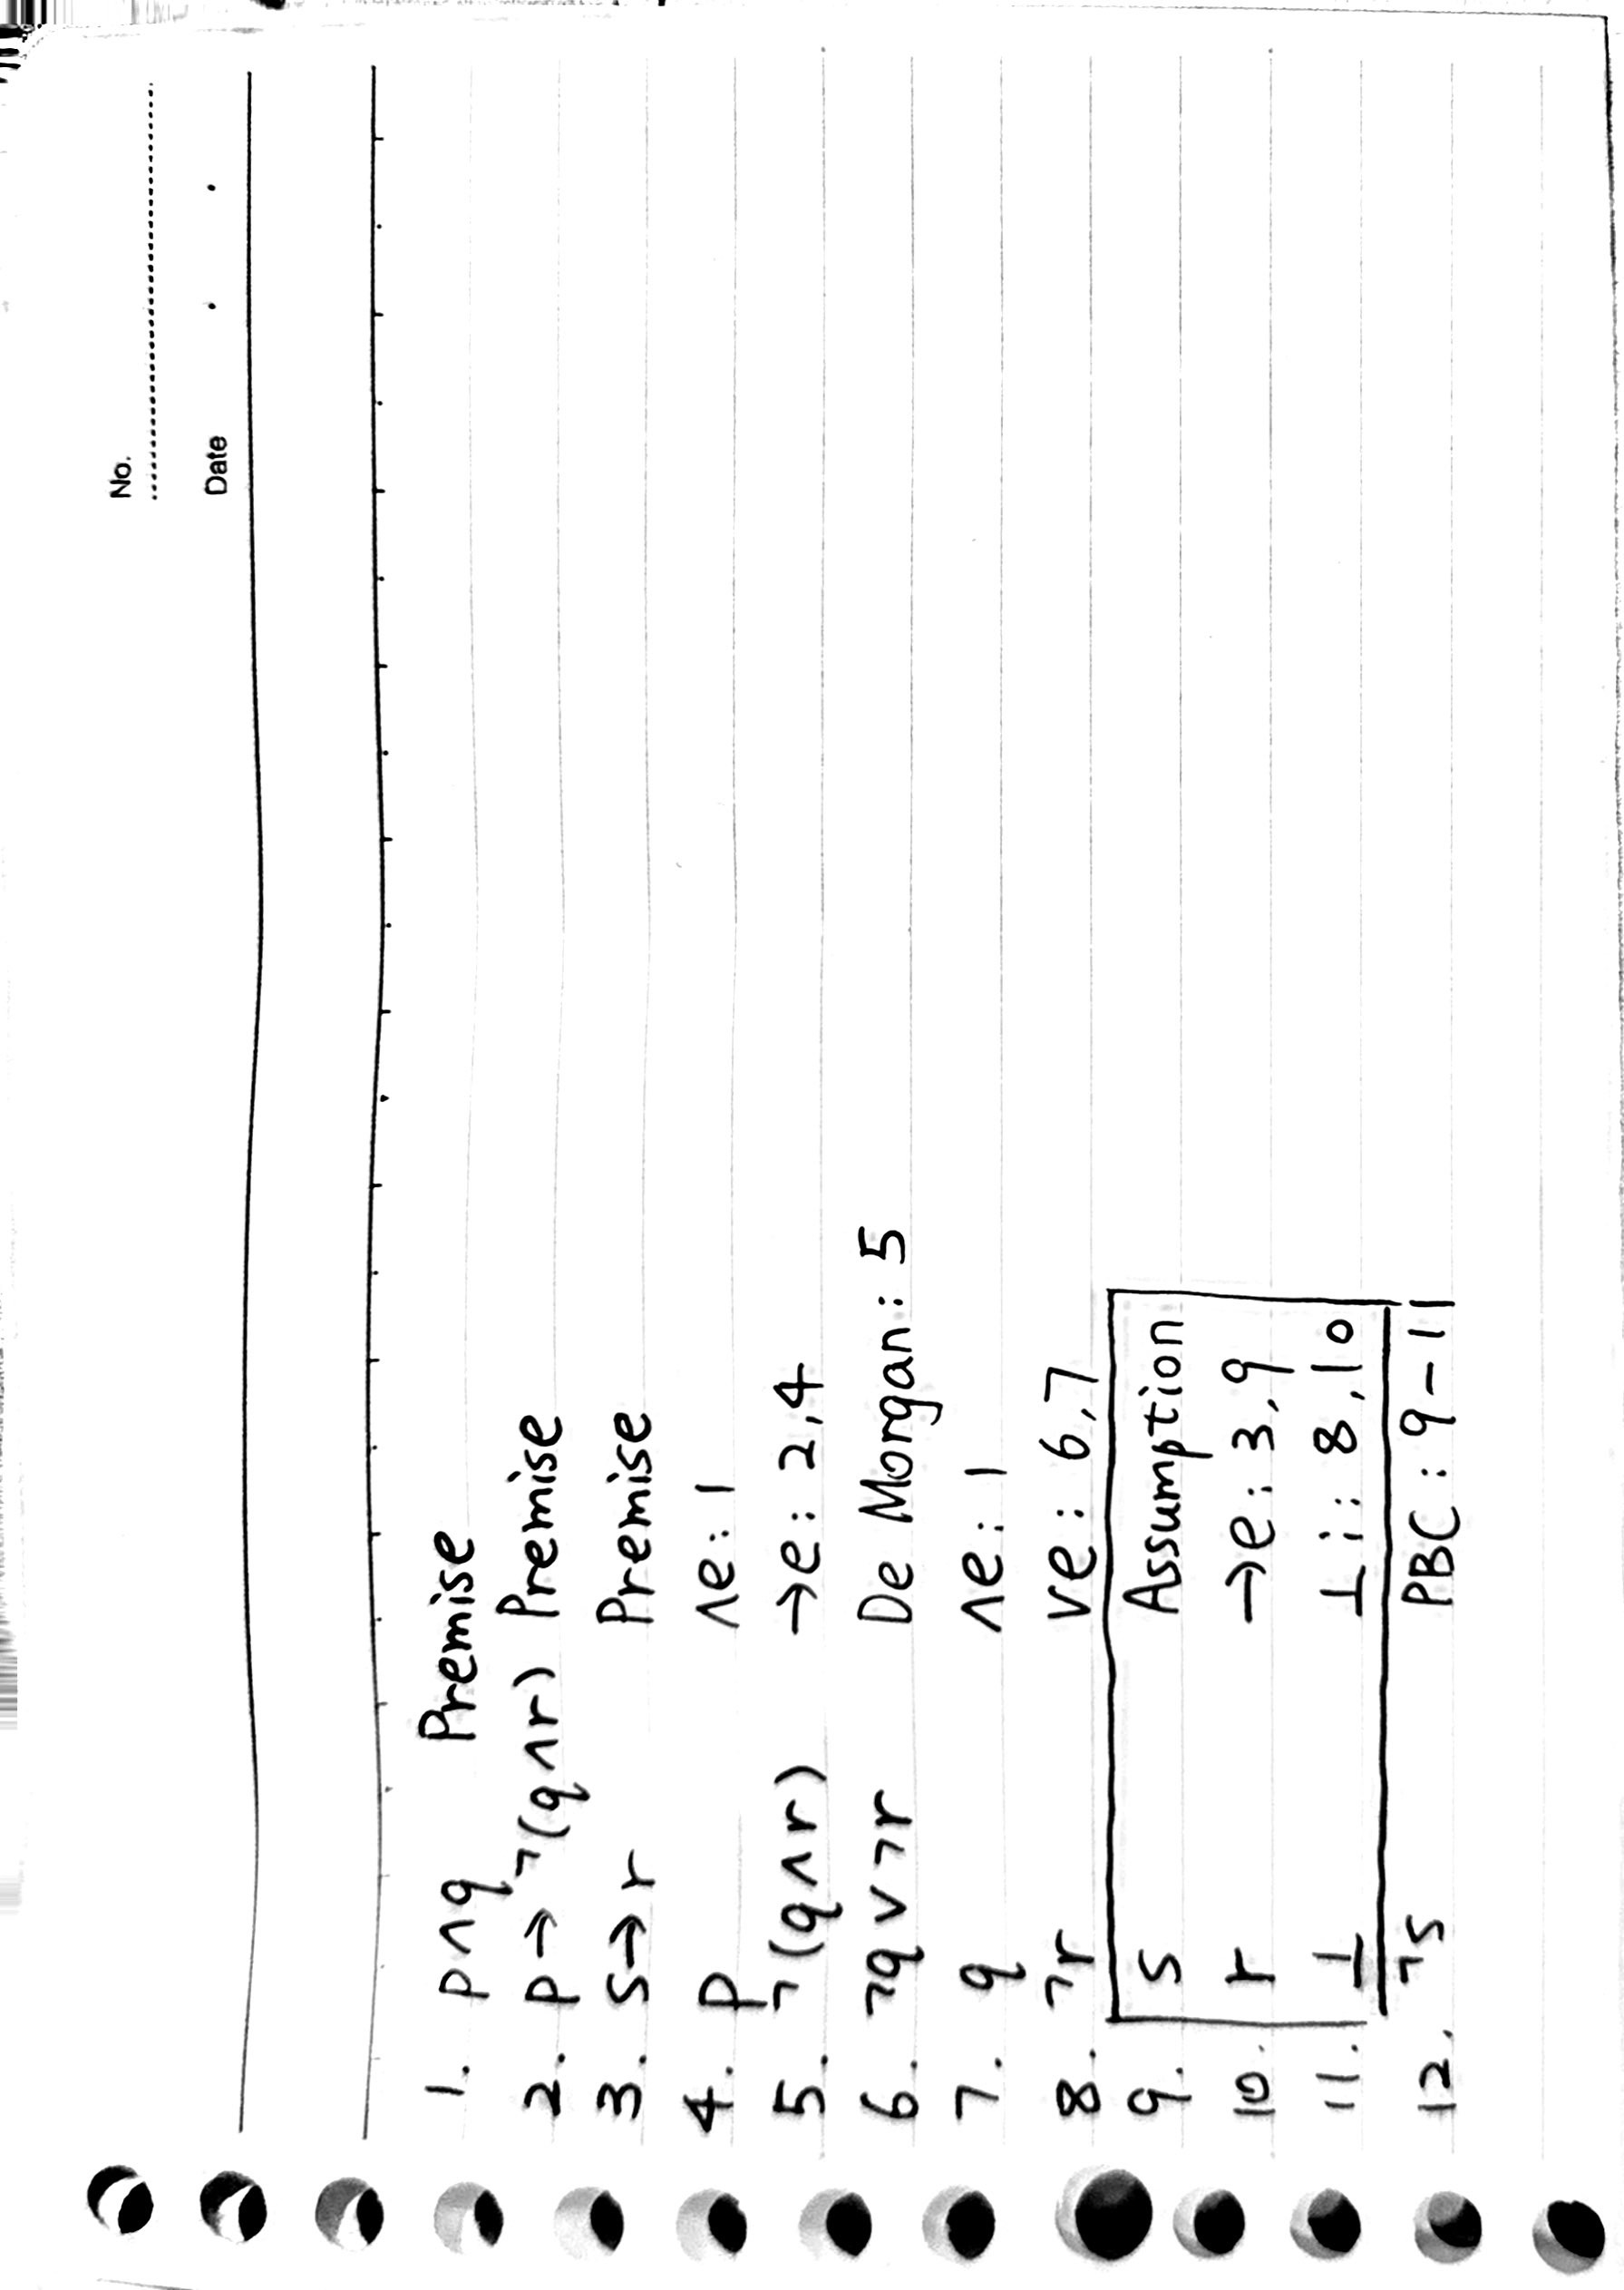 No.
Date
1. p∧q Premise
2. p→¬(q∧r) Premise
3. s→r Premise
4. p ∧e: 1
5. ¬(q∧r) →e: 2,4
6. ¬q∨¬r De Morgan: 5
7. q ∧e: 1
8. ¬r ∨e: 6,7
9. s Assumption
10. r →e: 3,9
11. ⊥ ⊥i: 8,10
12. ¬s PBC: 9-11